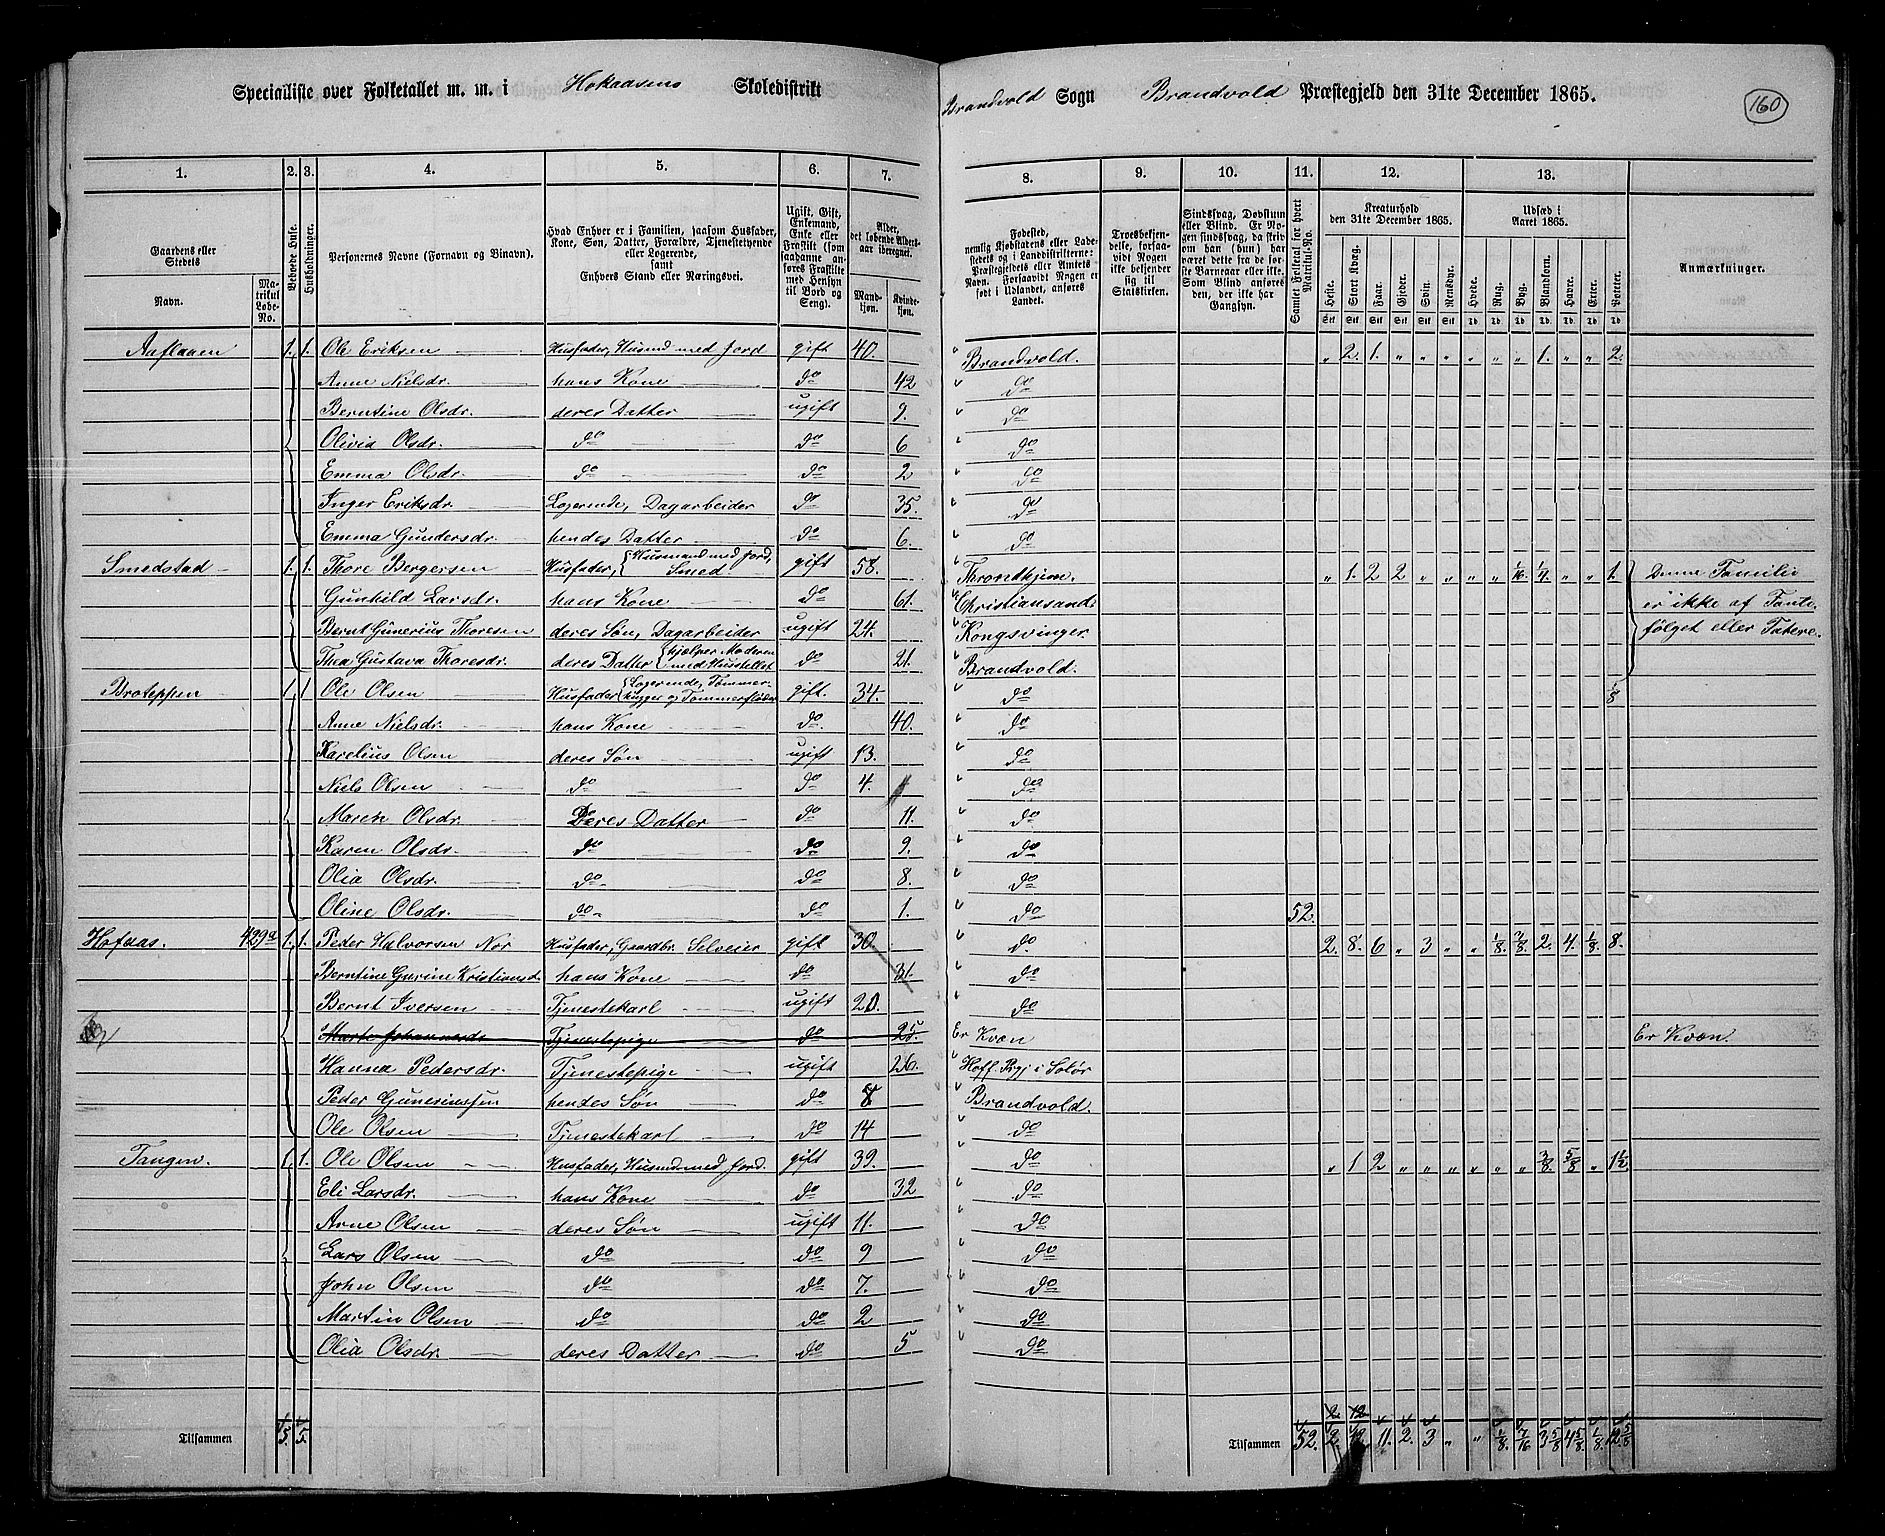 Specialliste over Folketallet m. m. i Hokaasens Skoledistrikt Brandvold Sogn Brandvold Præstegjeld den 31te December 1865. 160
1. 2. 3. 4. 5. 6. 7. 8. 9. 10. 11. 12. 13.
Gaardens eller Stedets
Navn.
Matrikul Løbe-No.
Beboede Huse.
Husholdninger.
Personernes Navne (Fornavn og Binavn).
Hvad Enhver er i Familien, saasom Husfader, Kone, Søn, Datter, Forældre, Tjenestetyende eller Logerende, samt Enhvers Stand eller Næringsvei.
Ugift, Gift, Enkemand, Enke eller Fraskilt (som saadanne anføres Fraskilte med Hensyn til Bord og Seng).
Alder, det løbende Alders-aar iberegnet.
Mandkjøn. Kvindekjøn.
Fødested, nemlig Kjøbstadens eller Ladestedets og i Landdistrikterne: Præstegjeldets eller Amtets Navn. Forsaavidt Nogen er født i Udlandet, anføres Landet.
Troesbekjendelse, forsaavidt Nogen ikke bekjender sig til Statskirken.
Sindssvag, Døvstum eller Blind. Er Nogen sindssvag, da skrives om han (hun) har været dette fra de første Barneaar eller ikke. Som Blind anføres den, der ikke har Gangsyn.
Samlet Folketal for hvert Matrikul-No.
Kreaturhold den 31te December 1865.
Heste. Stort Kvæg. Faar. Gjeder. Svin. Rensdyr.
Udsæd i Aaret 1865.
Hvede. Rug. Byg. Blandkorn. Havre. Erter. Poteter.
Anmærkninger.
1. 1. Ole Eriksen Husfader, Husmd med Jord gift 40. Brandvold. " 2. 1. " " " " " " 1. " " 2.
Anne Nielsdr. hans Kone do 42 do
Berntine Olsdr. deres Datter ugift 9. do
Olivia Olsdr. do do 6 do
Emma Olsdr. do do 2 do
Inger Eriksdr. Logerende, Dagarbeider do 35. do
Emma Gundersdr. hendes Datter do 6. do
Smedstad 1. 1. Thore Bergersen Husfader, Husmand med Jord, Smed. gift 58. Throndhjem. " 1. 2 2 " " " " 1/16 1/4 " " 1. Denne Familie
Gunhild Larsdr. hans Kone do 61. Christiansand. er ikke af Fante-
Bernt Gunerius Thoresen deres Søn, Dagarbeider ugift 24. Kongsvinger følget eller Tatere.
Thea Gustava Thoresdr. deres Datter hjælper Moderen med Husstellet do 21. Brandvold.
Broteppen 1. 1 Ole Olsen Husfader Logerende, Tømmerhugger og Tømmerfløder gift. 34. do 1/8
Anne Nielsdr. hans Kone do. 40. do
Karelius Olsen deres Søn ugift 13. do
Niels Olsen do do 4. do
Maren Olsdr. Deres Datter do 11. do
Karen Olsdr. do do 9. do
Olia Olsdr. do do 8. do
Oline Olsdr. do do 1. do 52.
Hofaas. 429a 1. 1. Peder Halvorsen Nor Husfader, Gaardbr. Selveier gift 30. do. 2. 8. 6 " 3 " " 1/8. 3/8 2. 4. 1/8. 8.
Berntine Gurine Kristiansdr hans Kone do 31. do
Bernt Iversen Tjenestekarl ugift 20. do
Marte Johannesdr Tjenestepige do 25. Er Kvæn Er Kvæn.
Hanna Pedersdr. Tjenestepige ugift 26. Hoff Pgj i Solør
Peder Guneriussen hendes Søn do 8 Brandvold.
Ole Olsen Tjenestekarl do 14 do
Tangen. 1. 1. Ole Olsen Husfader, Husmd med Jord. gift 39. do " 1 2 " " " " " " 3/8 5/8 " 1 1/2
Eli Larsdr. hans Kone do 32 do
Arne Olsen deres Søn ugift 11. do
Lars Olsen do do 9 do
John Olsen do do 7. do
Martin Olsen do do 2 do
Olia Olsdr. deres Datter do 5 do
Tilsammen 5. 5. Tilsammen 52. 2. 12. 11. 2. 3 " " 1/8. 7/16 3 5/8 4 5/8 1/8. 12. 5/8